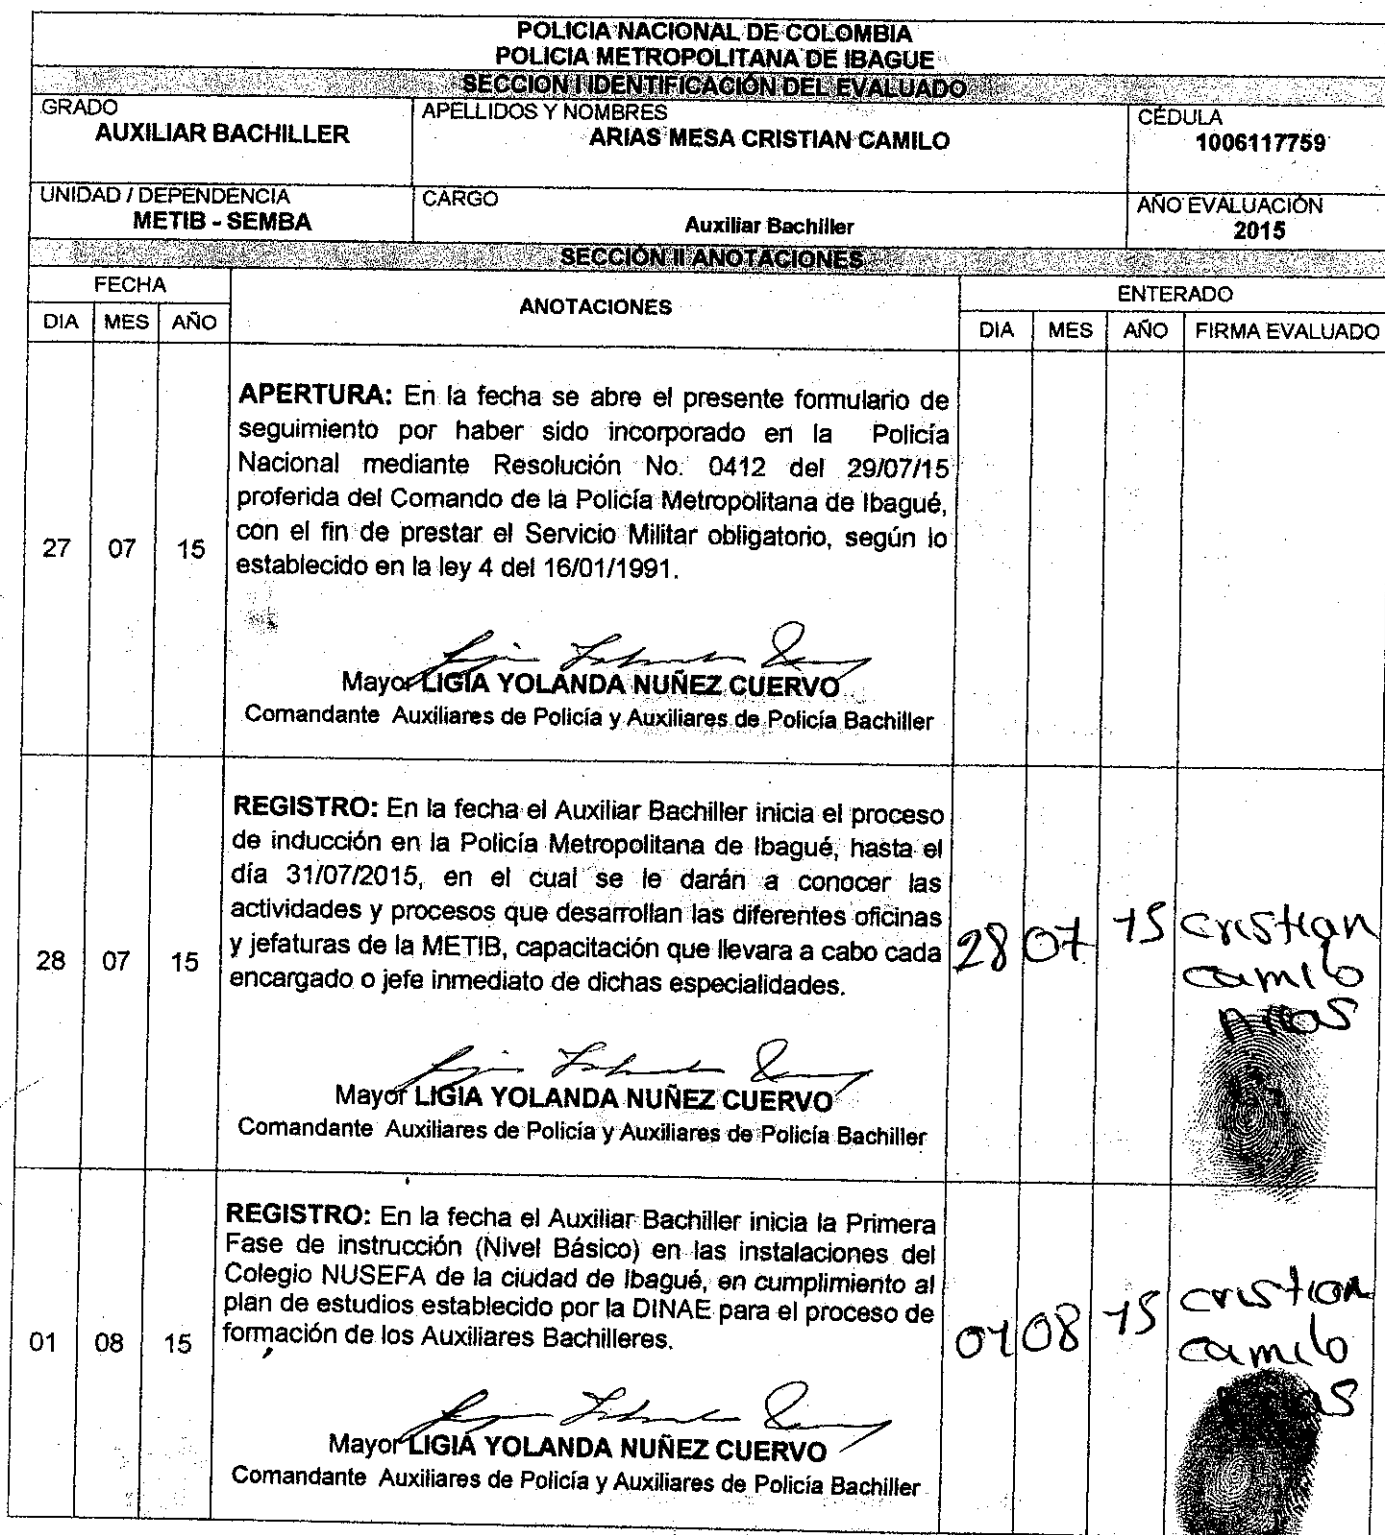 POLICIA NACIONAL DE COLOMBIA
POLICIA METROPOLITANA DE IBAGUE
SECCION I IDENTIFICACIÓN DEL EVALUADO
GRADO
AUXILIAR BACHILLER
APELLIDOS Y NOMBRES
ARIAS MESA CRISTIAN CAMILO
CÉDULA
1006117759
UNIDAD / DEPENDENCIA
METIB - SEMBA
CARGO
Auxiliar Bachiller
AÑO EVALUACIÓN
2015
SECCIÓN II ANOTACIONES
FECHA
ANOTACIONES
ENTERADO
DIA MES AÑO
DIA MES AÑO FIRMA EVALUADO
27 07 15
APERTURA: En la fecha se abre el presente formulario de
seguimiento por haber sido incorporado en la Policía
Nacional mediante Resolución No. 0412 del 29/07/15
proferida del Comando de la Policía Metropolitana de Ibagué,
con el fin de prestar el Servicio Militar obligatorio, según lo
establecido en la ley 4 del 16/01/1991.
Mayor LIGIA YOLANDA NUÑEZ CUERVO
Comandante Auxiliares de Policía y Auxiliares de Policía Bachiller
28 07 15
REGISTRO: En la fecha el Auxiliar Bachiller inicia el proceso
de inducción en la Policía Metropolitana de Ibagué, hasta el
día 31/07/2015, en el cual se le darán a conocer las
actividades y procesos que desarrollan las diferentes oficinas
y jefaturas de la METIB, capacitación que llevara a cabo cada
encargado o jefe inmediato de dichas especialidades.
Mayor LIGIA YOLANDA NUÑEZ CUERVO
Comandante Auxiliares de Policía y Auxiliares de Policía Bachiller
28 07 15 cristian
camilo
Arias
01 08 15
REGISTRO: En la fecha el Auxiliar Bachiller inicia la Primera
Fase de instrucción (Nivel Básico) en las instalaciones del
Colegio NUSEFA de la ciudad de Ibagué, en cumplimiento al
plan de estudios establecido por la DINAE para el proceso de
formación de los Auxiliares Bachilleres.
Mayor LIGIA YOLANDA NUÑEZ CUERVO
Comandante Auxiliares de Policía y Auxiliares de Policía Bachiller
01 08 15 cristian
camilo